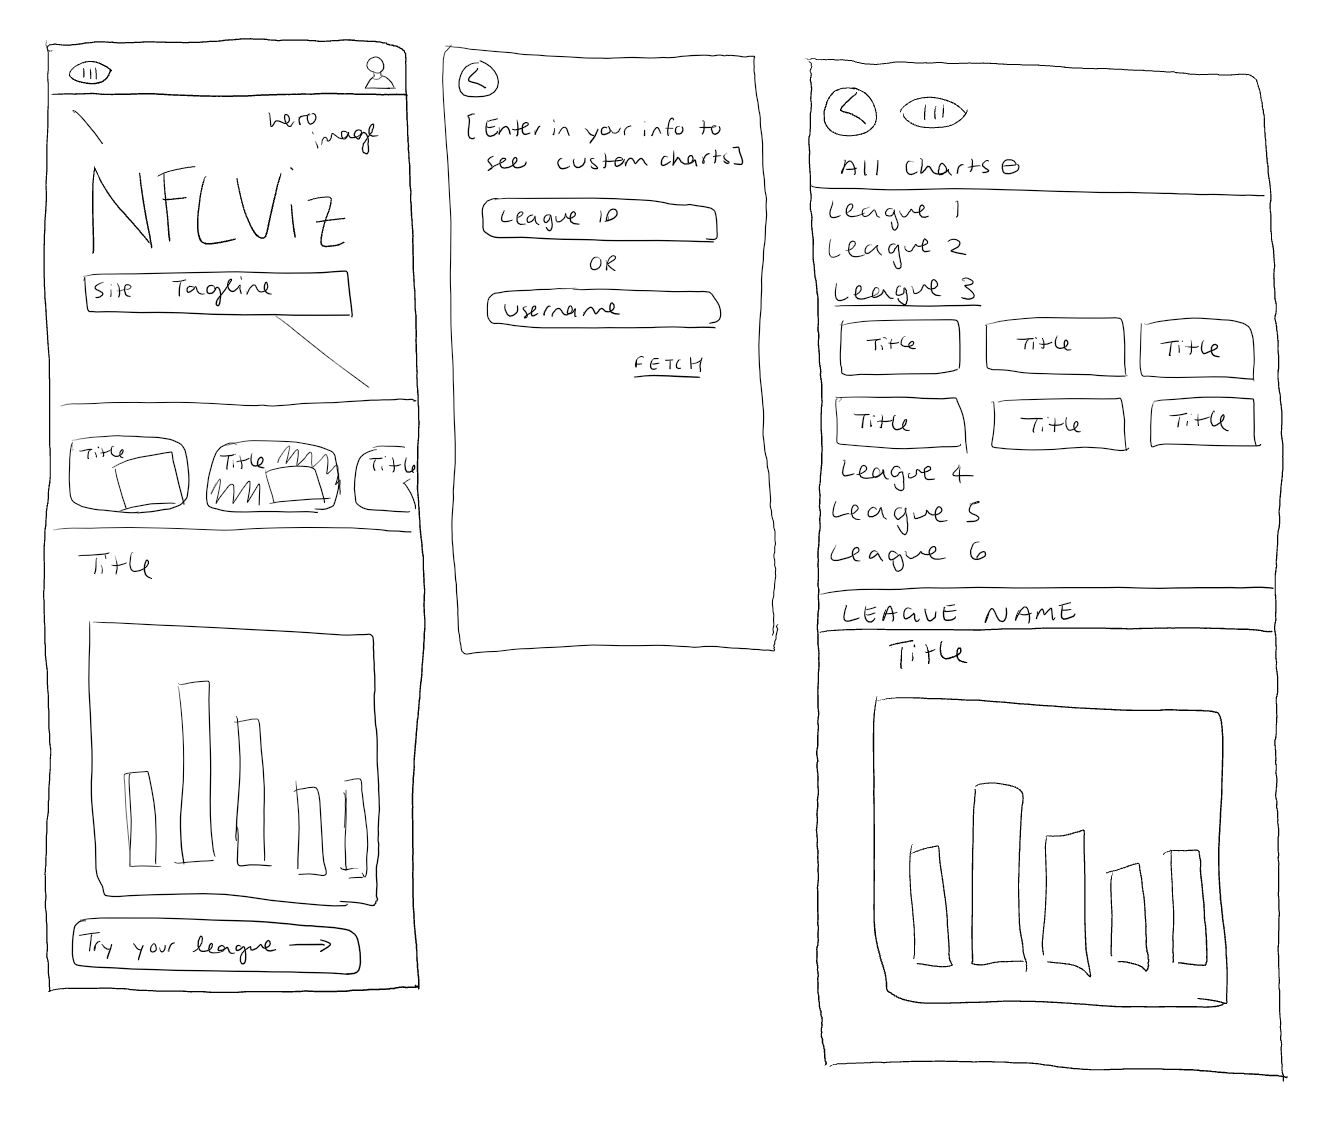 hero
image
NFLViz
Site Tagline
Title
Title
Title
Title
Try your league →
[Enter in your info to
see custom charts]
League ID
OR
Username
FETCH
All Charts
League 1
League 2
League 3
Title Title Title
Title Title Title
League 4
League 5
League 6
LEAGUE NAME
Title